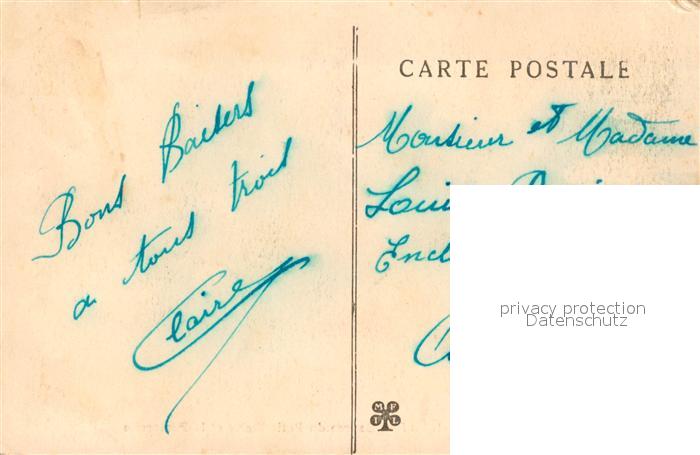 Bons Baisers
a tous trois
Claire
CARTE POSTALE
Monsieur et Madame
privacy protection
Datenschutz
M F
I L